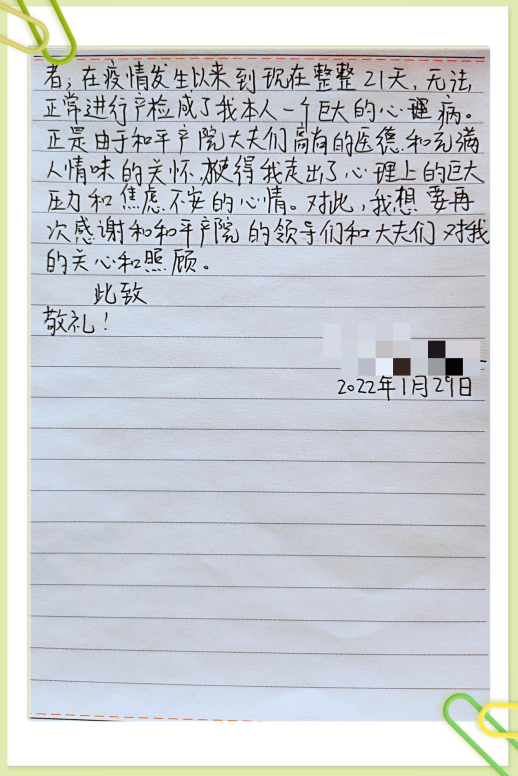 者；在疫情发生以来到现在整整21天，无法
正常进行产检成了我本人一个巨大的心理病。
正是由于和平产院大夫们高尚的医德和充满
人情味的关怀，使得我走出了心理上的巨大
压力和焦虑不安的心情。对此，我想要再
次感谢和和平产院的领导们和大夫们对我
的关心和照顾。
此致
敬礼！
2022年1月29日